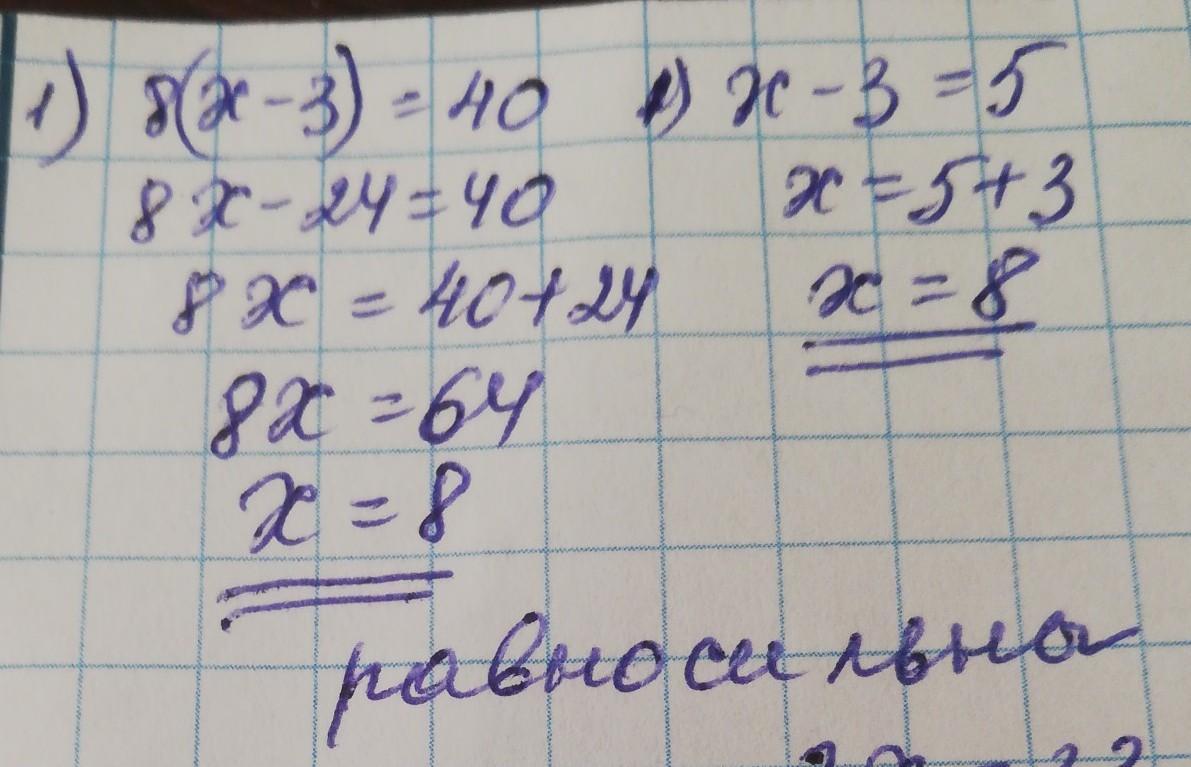 1) 8(x-3) = 40
8x-24=40
8x = 40+24
8x = 64
x = 8
1) x-3 = 5
x = 5+3
x = 8
равносильно